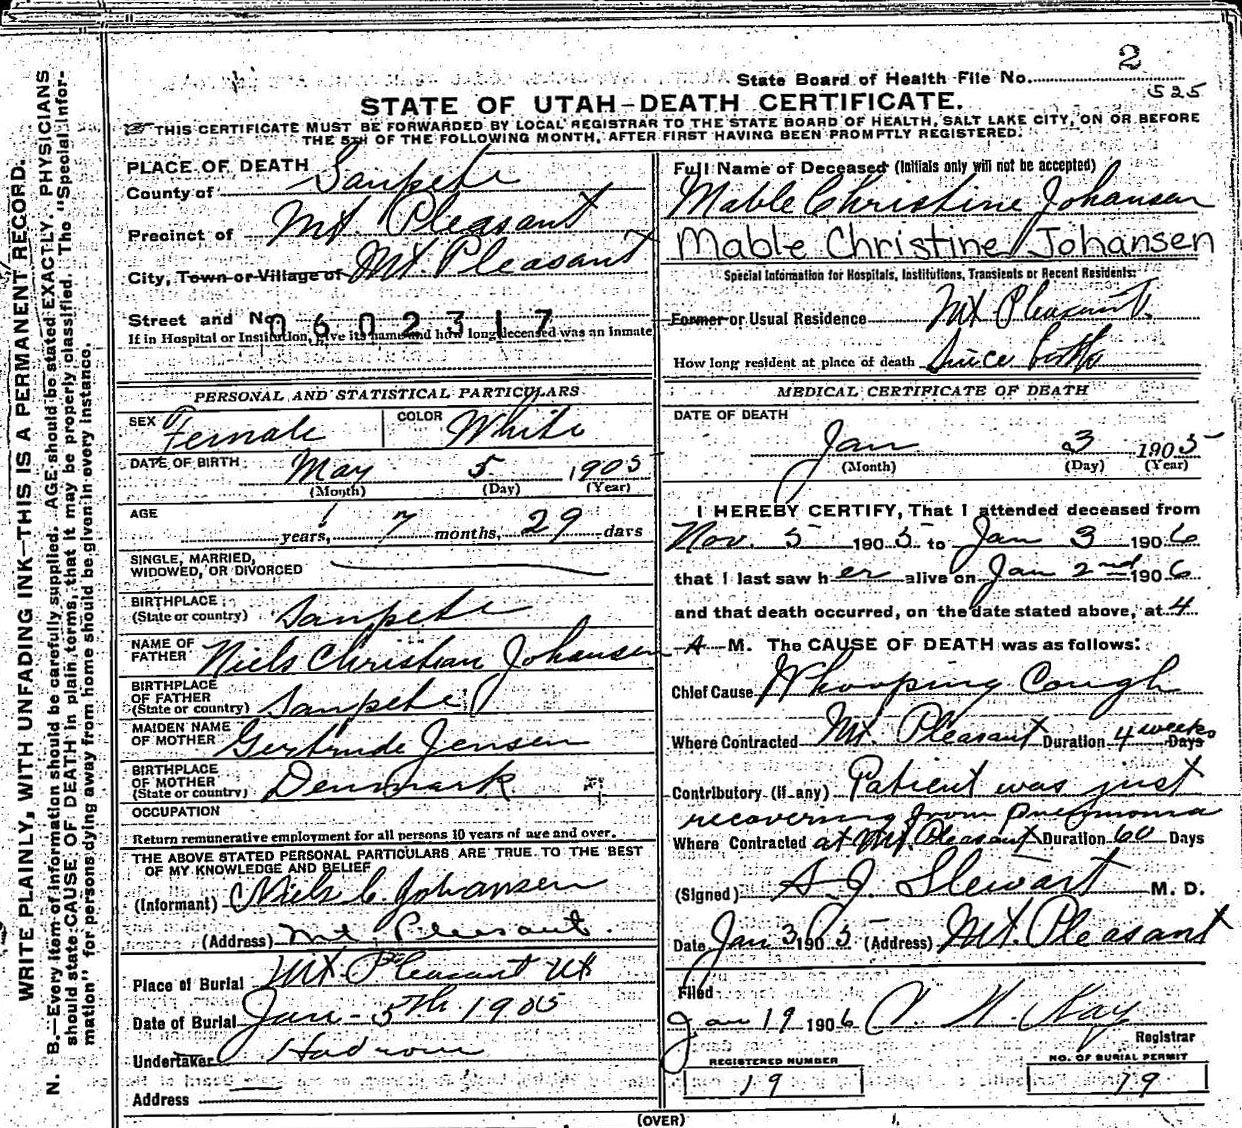 2
State Board of Health File No.
525
STATE OF UTAH-DEATH CERTIFICATE.
THIS CERTIFICATE MUST BE FORWARDED BY LOCAL REGISTRAR TO THE STATE BOARD OF HEALTH, SALT LAKE CITY, ON OR BEFORE
THE 5TH OF THE FOLLOWING MONTH, AFTER FIRST HAVING BEEN PROMPTLY REGISTERED.
WRITE PLAINLY, WITH UNFADING INK—THIS IS A PERMANENT RECORD.
N. B.—Every item of information should be carefully supplied. AGE should be stated EXACTLY. PHYSICIANS
should state CAUSE OF DEATH in plain terms, that it may be properly classified. The "Special Infor-
mation" for persons dying away from home should be given in every instance.
PLACE OF DEATH
County of Sanpete
Precinct of Mt Pleasant
City, Town or Village of Mt. Pleasant
Street and No. 0602317
If in Hospital or Institution, give its name and how long deceased was an inmate
PERSONAL AND STATISTICAL PARTICULARS
SEX Female COLOR White
DATE OF BIRTH May 5 1905
(Month) (Day) (Year)
AGE years, 7 months, 29 days
SINGLE, MARRIED,
WIDOWED, OR DIVORCED
BIRTHPLACE
(State or country) Sanpete
NAME OF
FATHER Niels Christian Johansen
BIRTHPLACE
OF FATHER
(State or country) Sanpete
MAIDEN NAME
OF MOTHER Gertrude Jensen
BIRTHPLACE
OF MOTHER
(State or country) Denmark
OCCUPATION
Return remunerative employment for all persons 10 years of age and over.
THE ABOVE STATED PERSONAL PARTICULARS ARE TRUE TO THE BEST
OF MY KNOWLEDGE AND BELIEF
(Informant) Niels C. Johansen
(Address) Mt. Pleasant.
Place of Burial Mt. Pleasant Ut
Date of Burial Jan - 5th 1905
Undertaker
Address
Full Name of Deceased (Initials only will not be accepted)
Mable Christine Johansen
Mable Christine Johansen
Special Information for Hospitals, Institutions, Transients or Recent Residents:
Former or Usual Residence Mt Pleasant.
How long resident at place of death Since birth
MEDICAL CERTIFICATE OF DEATH
DATE OF DEATH
Jan 3 1905
(Month) (Day) (Year)
I HEREBY CERTIFY, That I attended deceased from
Nov. 5 1905 to Jan 3 1906
that I last saw her alive on Jan 2nd 1906
and that death occurred, on the date stated above, at 4
A M. The CAUSE OF DEATH was as follows:
Chief Cause Whooping Cough
Where Contracted Mt. Pleasant Duration 4 weeks Days
Contributory (if any) Patient was just
recovering from Pneumonia
Where Contracted at Mt Pleasant Duration 60 Days
(Signed) S. J. Stewart M. D.
Date Jan 3 1905 (Address) Mt. Pleasant
Filed
Jan 19 1906 Kay
Registrar
REGISTERED NUMBER
19
NO. OF BURIAL PERMIT
79
(OVER)